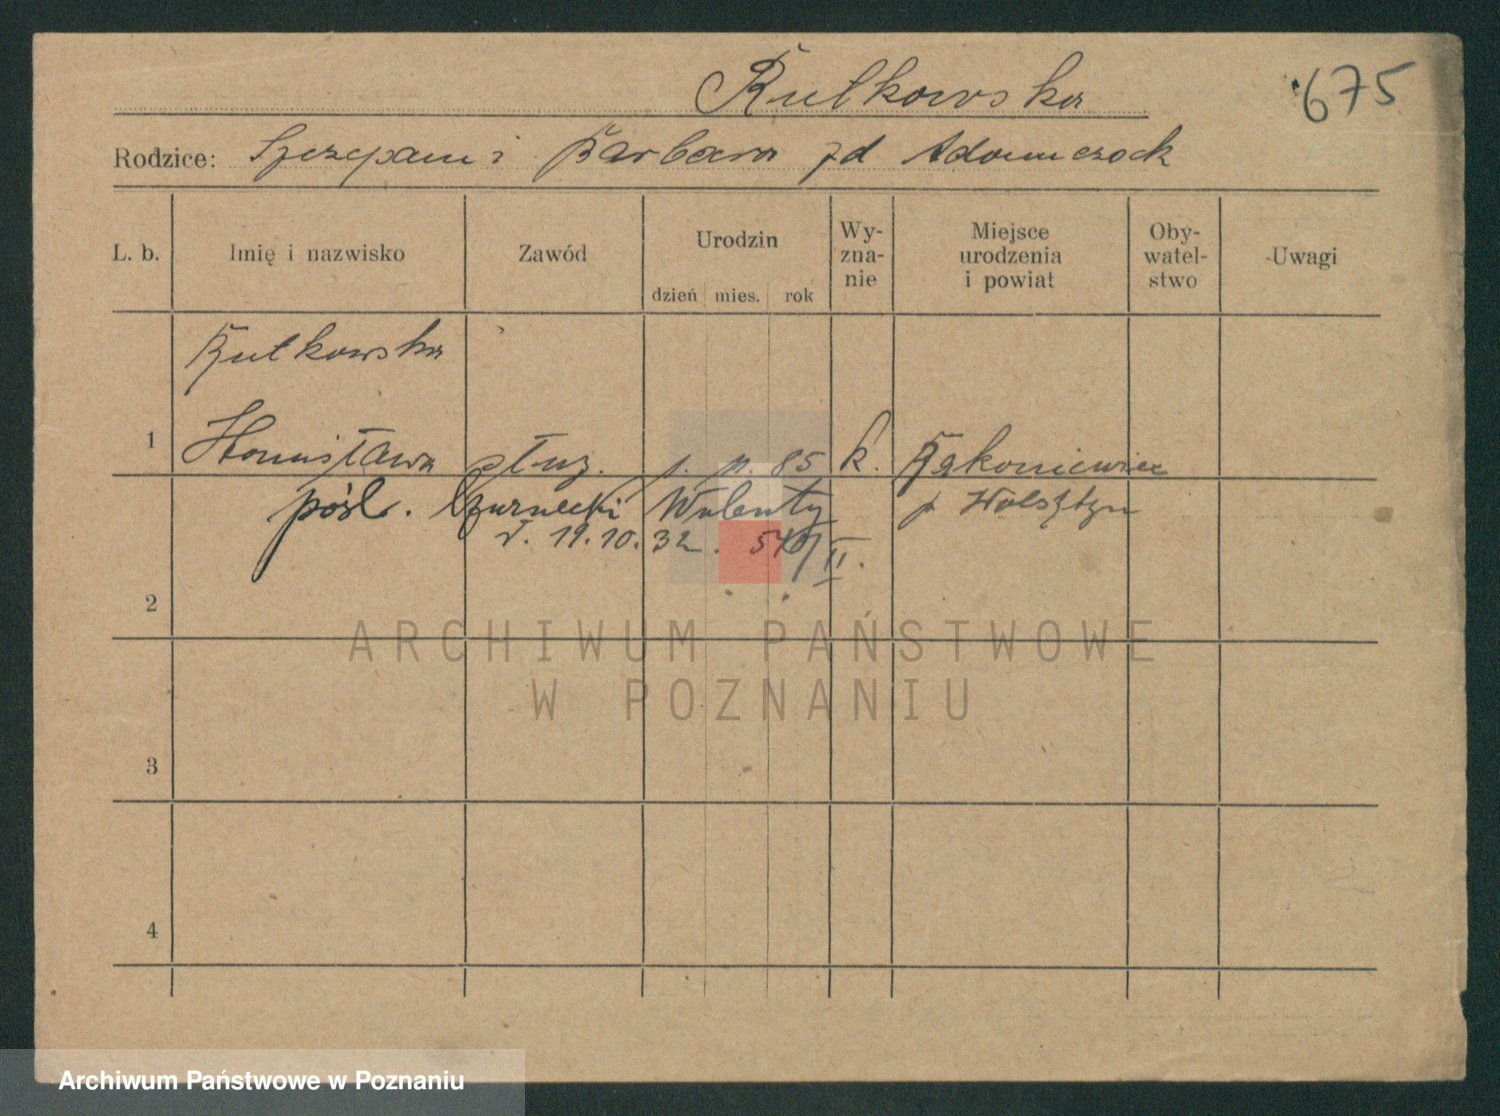 Rutkowska 675
Rodzice: Szczepan i Barbara zd Adamczack
L. b. Imię i nazwisko Zawód Urodzin dzień mies. rok Wy-zna-nie Miejsce urodzenia i powiat Oby-watel-stwo Uwagi
Rutkowska
1 Stanisława służ. 85 k. Rakoniewice
pośl. Czarnecki Walenty p Wolsztyn
d. 19.10.32. II.
2
ARCHIWUM PAŃSTWOWE
W POZNANIU
3
4
Archiwum Państwowe w Poznaniu